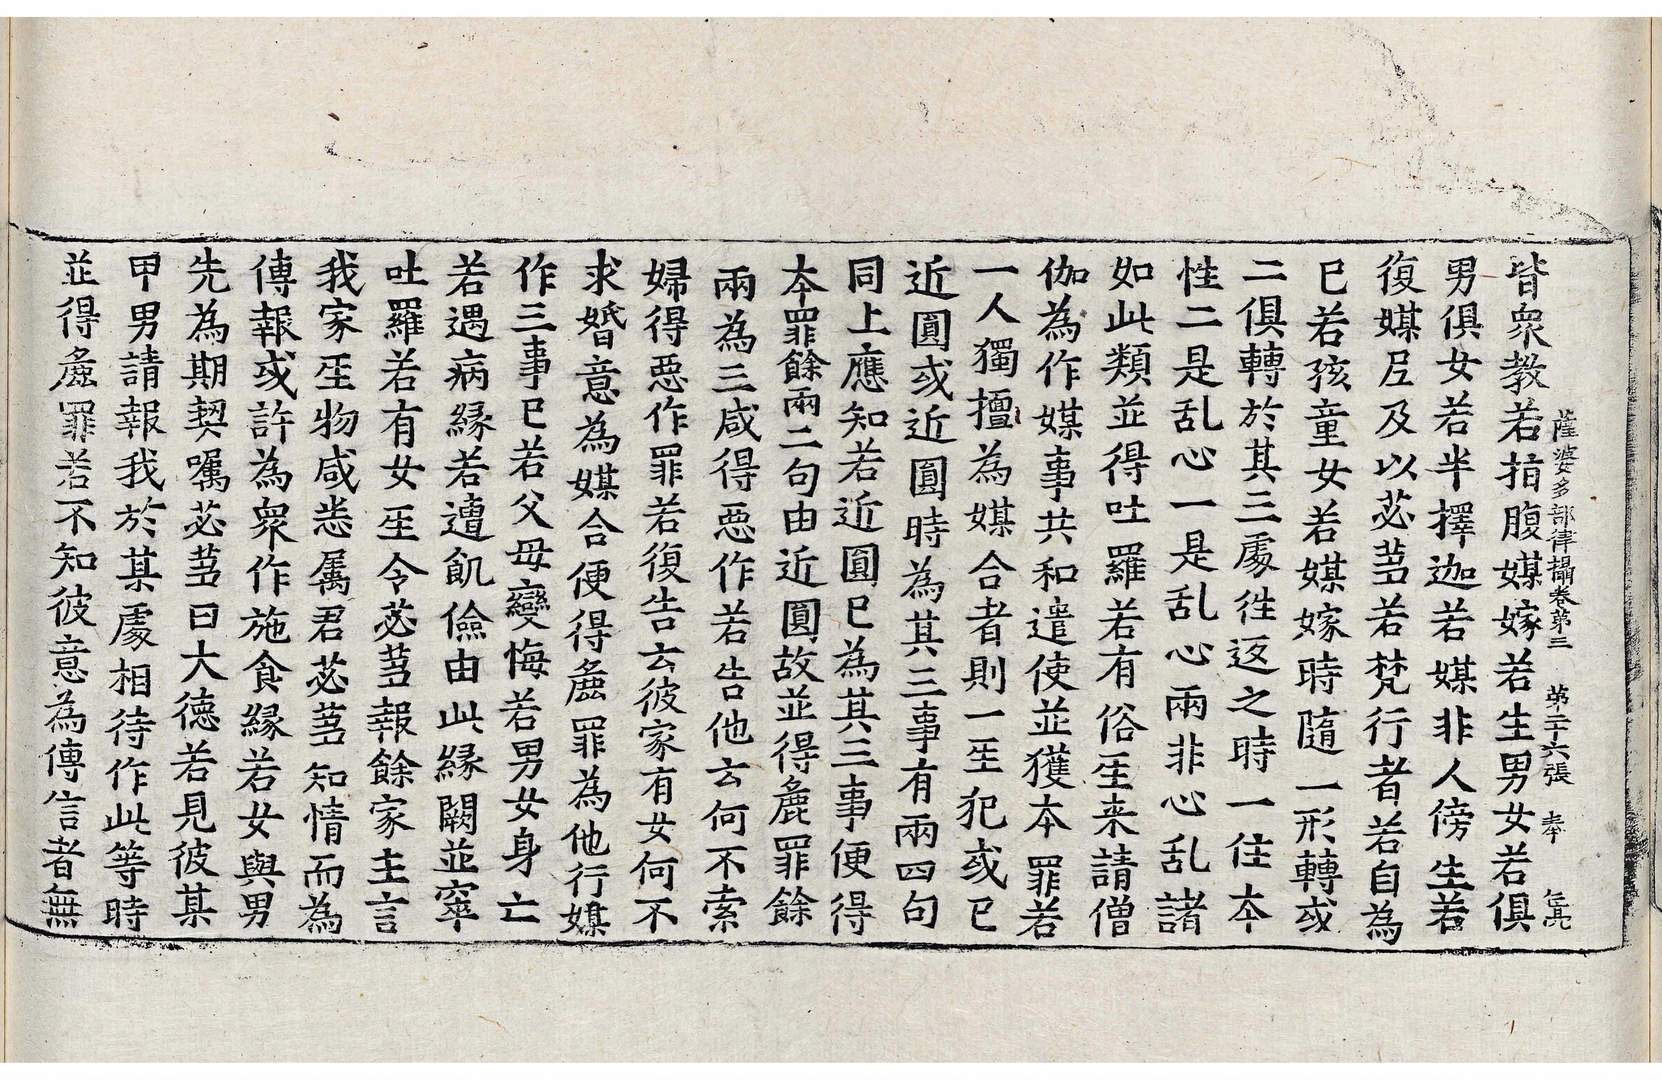 薩婆多部律攝卷第三　第二十六張　奉
皆衆教若指腹媒嫁若生男女若俱
男俱女若半擇迦若媒非人傍生若
復媒𡰱及以苾芻若梵行者若自為
已若孩童女若媒嫁時隨一形轉或
二俱轉於其三處徃返之時一住本
性二是乱心一是乱心兩非心乱諸
如此類並得吐羅若有俗𤯔来請僧
伽為作媒事共和遣使並獲本罪若
一人獨擅為媒合者則一𤯔犯或已
近圓或近圓時為其三事有兩四句
同上應知若近圓已為其三事便得
夲罪餘兩二句由近圓故並得麁罪餘
兩為三咸得惡作若告他云何不索
婦得惡作罪若復告云彼家有女何不
求婚意為媒合便得麁罪為他行媒
作三事已若父母變悔若男女身亡
若遇病緣若遭飢儉由此緣闕並窣
吐羅若有女𤯔令苾芻報餘家主言
我家𤯔物咸悉属君苾芻知情而為
傳報或許為衆作施食緣若女與男
先為期契囑苾芻曰大德若見彼某
甲男請報我於某處相待作此等時
並得麁罪若不知彼意為傳信者無